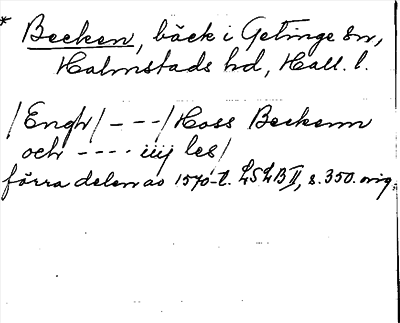 * Becken, bäck i Getinge sn,
Halmstads hd, Hall. l.
/Engh/ - - -/Hoss Beckenn
och - - - - iiij les/
förra delen av 1570-t. LSLB II, s. 350. orig.